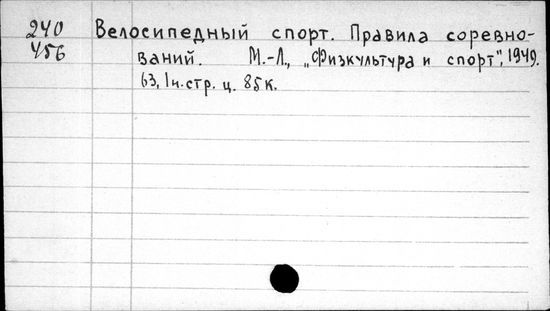 240 Велосипедный спорт. Правила соревно-
456 ваний. М.-Л., „Физкультура и спорт", 1949.
63, 1 н. стр. ц. 85 к.